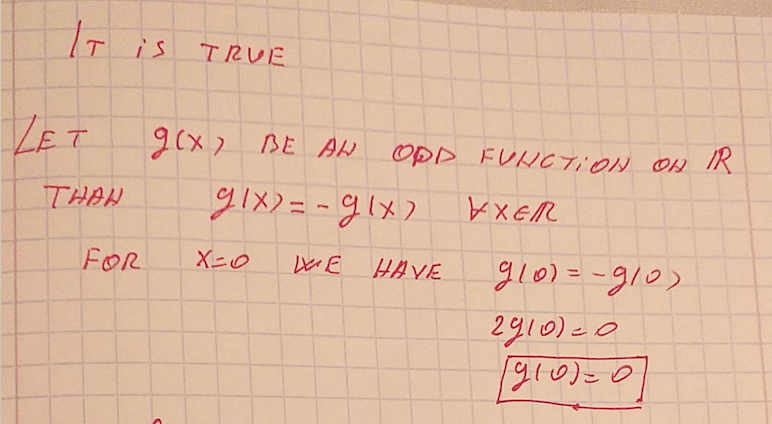 IT iS TRUE
LET g(x) BE AN ODD FUNCTION ON ℝ
THAN g(x) = -g(x) ∀x∈ℝ
FOR x=0 WE HAVE g(0) = -g(0)
2g(0) = 0
g(0) = 0